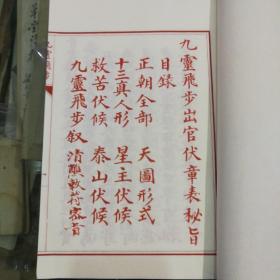 九靈飛步出官伏章表秘旨
目錄
正朝全部 天圖形式
十三真人形 星主伏候
救苦伏候 泰山伏候
九靈飛步叙 清醮敕符密旨
九靈飛步